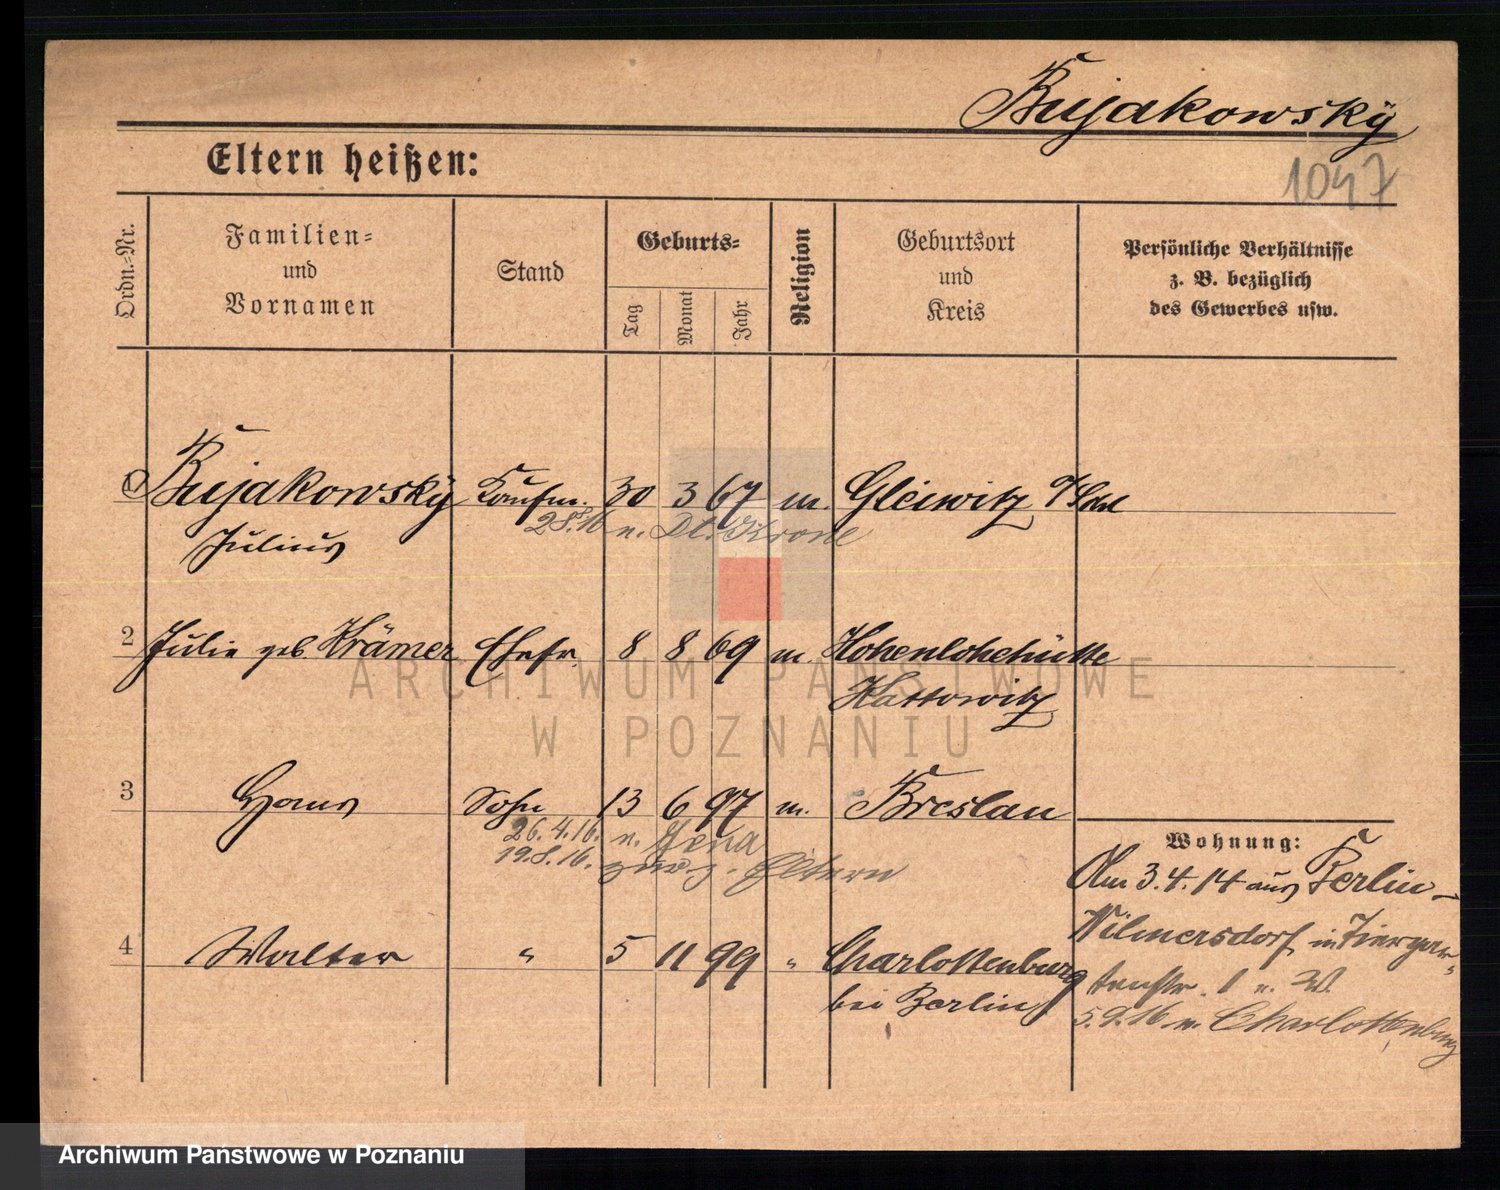 Bujakowsky
1047
Eltern heißen:
Ordn.=Nr.
Familien=
und
Vornamen
Stand
Geburts=
Tag
Monat
Jahr
Religion
Geburtsort
und
Kreis
Persönliche Verhältnisse
z. B. bezüglich
des Gewerbes usw.
1 Bujakowsky Kaufm. 30 3 67 m. Gleiwitz O/Schl
28.8.16 n. Dt. Krone
Julius
2 Julie geb Krämer Ehefr. 8 8 69 m. Hohenlohehütte
Kattowitz
3 Hans Sohn 13 6 97 m. Breslau
26.4.16. n. Jena
19.8.16. zur. z. Eltern
4 Walter " 5 11 99 " Charlottenburg
bei Berlin
Wohnung:
Am 3.4.14 aus Berlin-
Wilmersdorf in Tiergar-
tenstr. 1 n. W.
5.9.16 n. Charlottenburg
ARCHIWUM PAŃSTWOWE
W POZNANIU
Archiwum Państwowe w Poznaniu